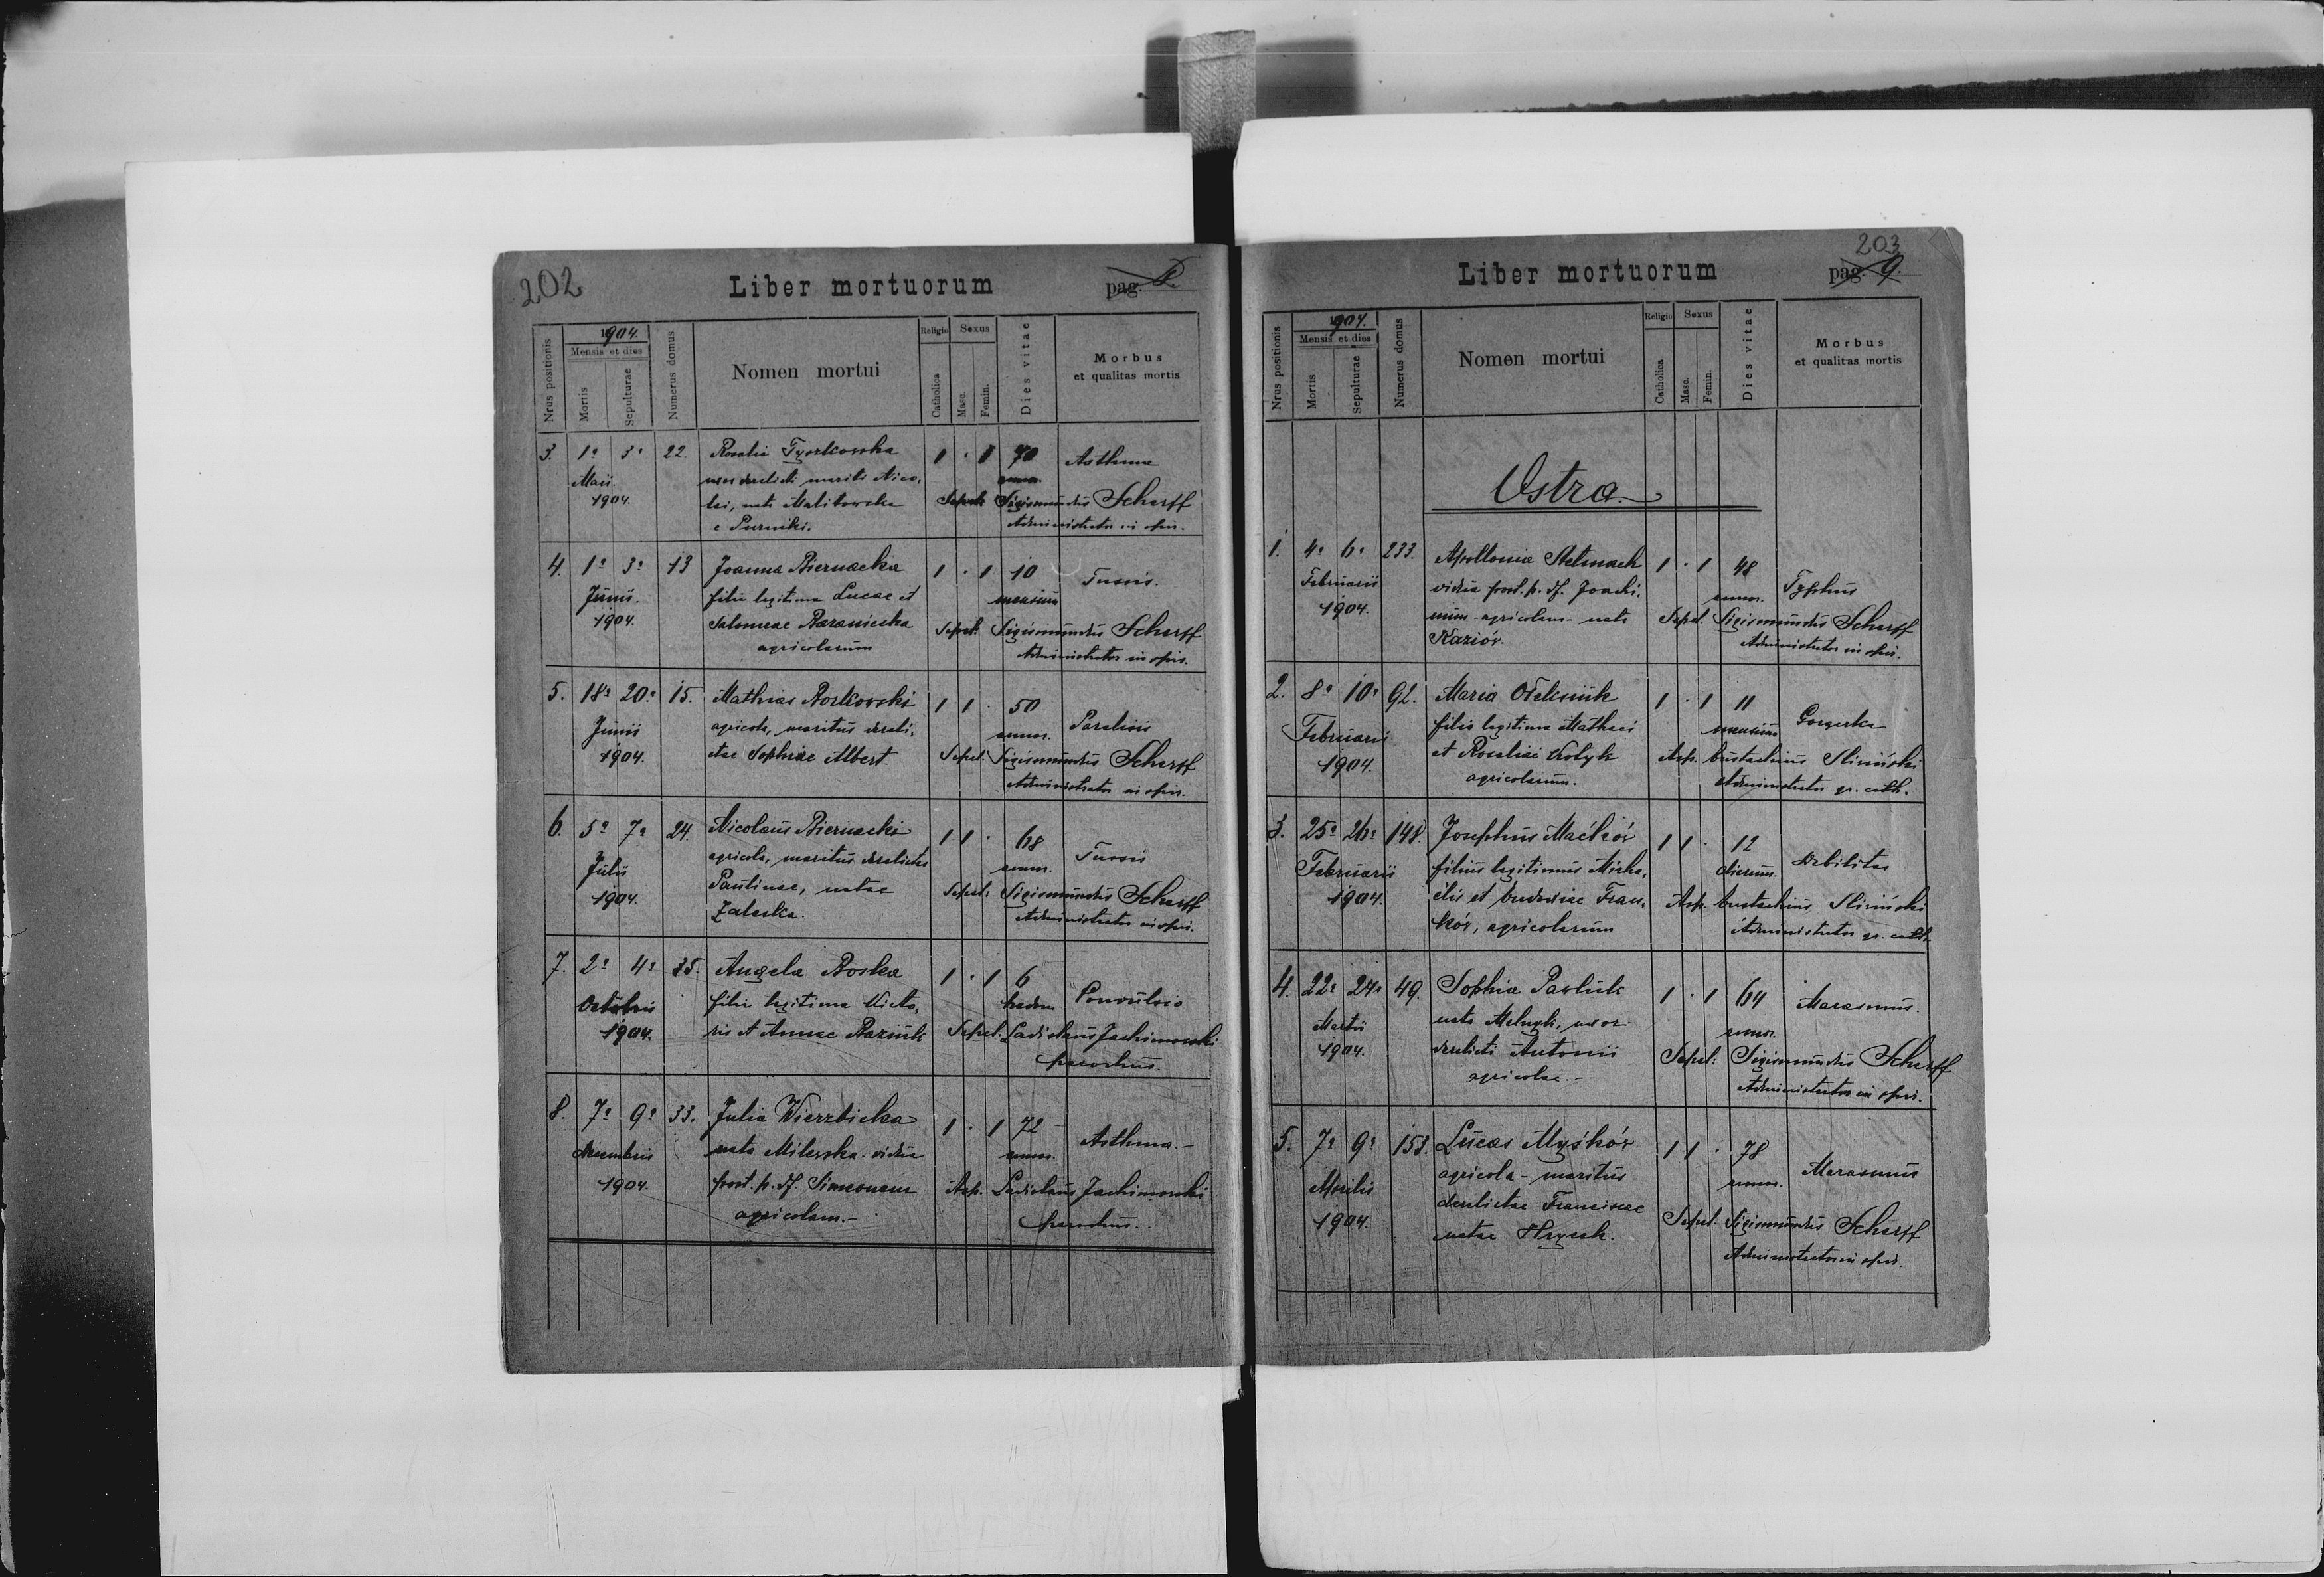 202
Liber mortuorum
pag.
1904.
Nrus positionis
Mensis et dies
Mortis
Sepulturae
Numerus domus
Nomen mortui
Religio
Catholica
Sexus
Masc.
Femin.
Dies vitae
Morbus
et qualitas mortis
3. 1a 3a 22. Rosalia 1 . 1 70 Asthma
Maii annor.
1904. lai, nata Malikowska Sepel: Sigismundus Scharff
e Purniki. Administrator in spir.
4. 1a 3a 13 Joanna Biernacka 1 . 1 10 Tussis.
Junii filia legitima Lucae et mensium
1904. Salomeae Baraniecka Sepel: Sigismundus Scharff
agricolarum Administrator in spir.
5. 18a 20a 15. Mathias Borkowski 1 1 . 50 Paralisis
Junii agricola, maritus dereli- annor.
1904. ctae Sophiae Albert. Sepel. Sigismundus Scharff
Administrator in spir.
6. 5a 7a 24. Nicolaus Biernacki 1 1 . 68 Tussis
Julii agricola, maritus derelictae annor.
1904. Paulinae, natae Sepel: Sigismundus Scharff
Zaleska. Administrator in spir.
7. 2a 4a 35. Angela Boska 1 . 1 6 Convulsio
Octobris filia legitima Victo-
1904. ris et Annae Baziuk Sepel. Ladislaus Jachimowski
parochus.
8. 7a 9a 33. Julia Wierzbicka 1 . 1 72 Asthma.-
Decembris nata Milewska vidua annor.
1904. post. p. df. Simeonem Asp. Ladislaus Jachimowski
agricolam.- parochus.
203
Liber mortuorum
pag. 9.
1904.
Nrus positionis
Mensis et dies
Mortis
Sepulturae
Numerus domus
Nomen mortui
Religio
Catholica
Sexus
Masc.
Femin.
Dies vitae
Morbus
et qualitas mortis
Ostra
1. 4a 6a 233. Apollonia Stelmach 1 . 1 48 Typhus
Februarii vidua post. p. df. Joachi- annor.
1904. mum - agricolam - nata Sepel. Sigismundus Scharff
Kaziór. Administrator in spir.
2. 8a 10a 92. Maria Oleksiuk 1 . 1 11
Februarii filia legitima Mathaei mensium
1904. et Rosaliae Kotyk Asp. Eustachius Sliwiński
agricolarum. Administrator gr. cath.
3. 25a 26a 148. Josephus Maćków 1 1 . 12 Debilitas
Februarii filius legitimus Micha- dierum.
1904. elis et Eudoxiae Fran- Asp. Eustachius Sliwiński
ków, agricolarum Administrator gr. cath.
4. 22a 24a 49. Sophia Pawluk 1 . 1 64 Marasmus.
Martii nata Melnyk, uxor annor.
1904. derelicti Antonii Sepel: Sigismundus Scharff
agricolae.- Administrator in spir.
5. 7a 9a 153. Lucas Myśków 1 1 . 78 Marasmus
Aprilis agricola - maritus annor.
1904. derelictae Franciscae Sepel. Sigismundus Scharff
natae Hrycak. Administrator in spir.